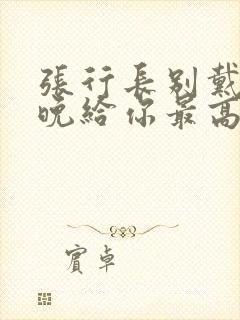 張行長別戴
晚給你最高
賓卓